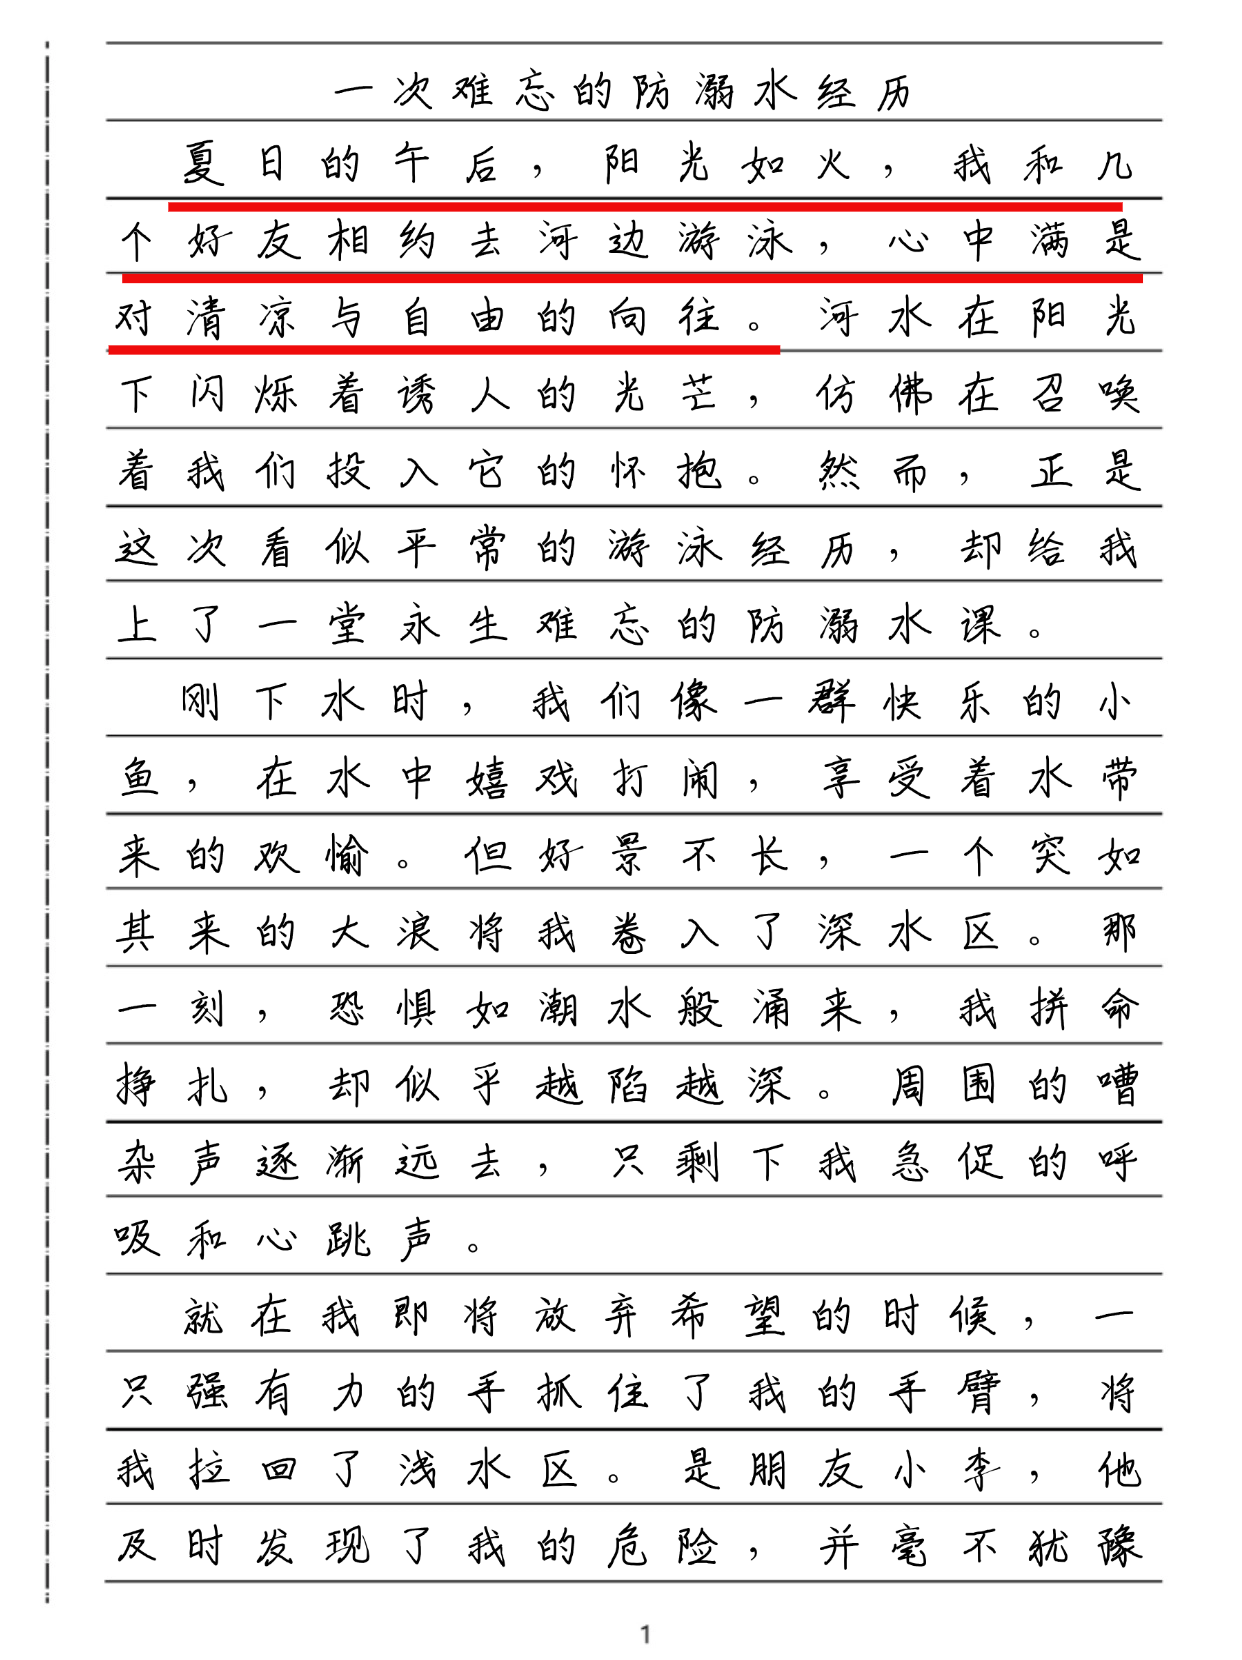 一次难忘的防溺水经历
夏日的午后，阳光如火，我和几
个好友相约去河边游泳，心中满是
对清凉与自由的向往。河水在阳光
下闪烁着诱人的光芒，仿佛在召唤
着我们投入它的怀抱。然而，正是
这次看似平常的游泳经历，却给我
上了一堂永生难忘的防溺水课。
刚下水时，我们像一群快乐的小
鱼，在水中嬉戏打闹，享受着水带
来的欢愉。但好景不长，一个突如
其来的大浪将我卷入了深水区。那
一刻，恐惧如潮水般涌来，我拼命
挣扎，却似乎越陷越深。周围的嘈
杂声逐渐远去，只剩下我急促的呼
吸和心跳声。
就在我即将放弃希望的时候，一
只强有力的手抓住了我的手臂，将
我拉回了浅水区。是朋友小李，他
及时发现了我的危险，并毫不犹豫
1